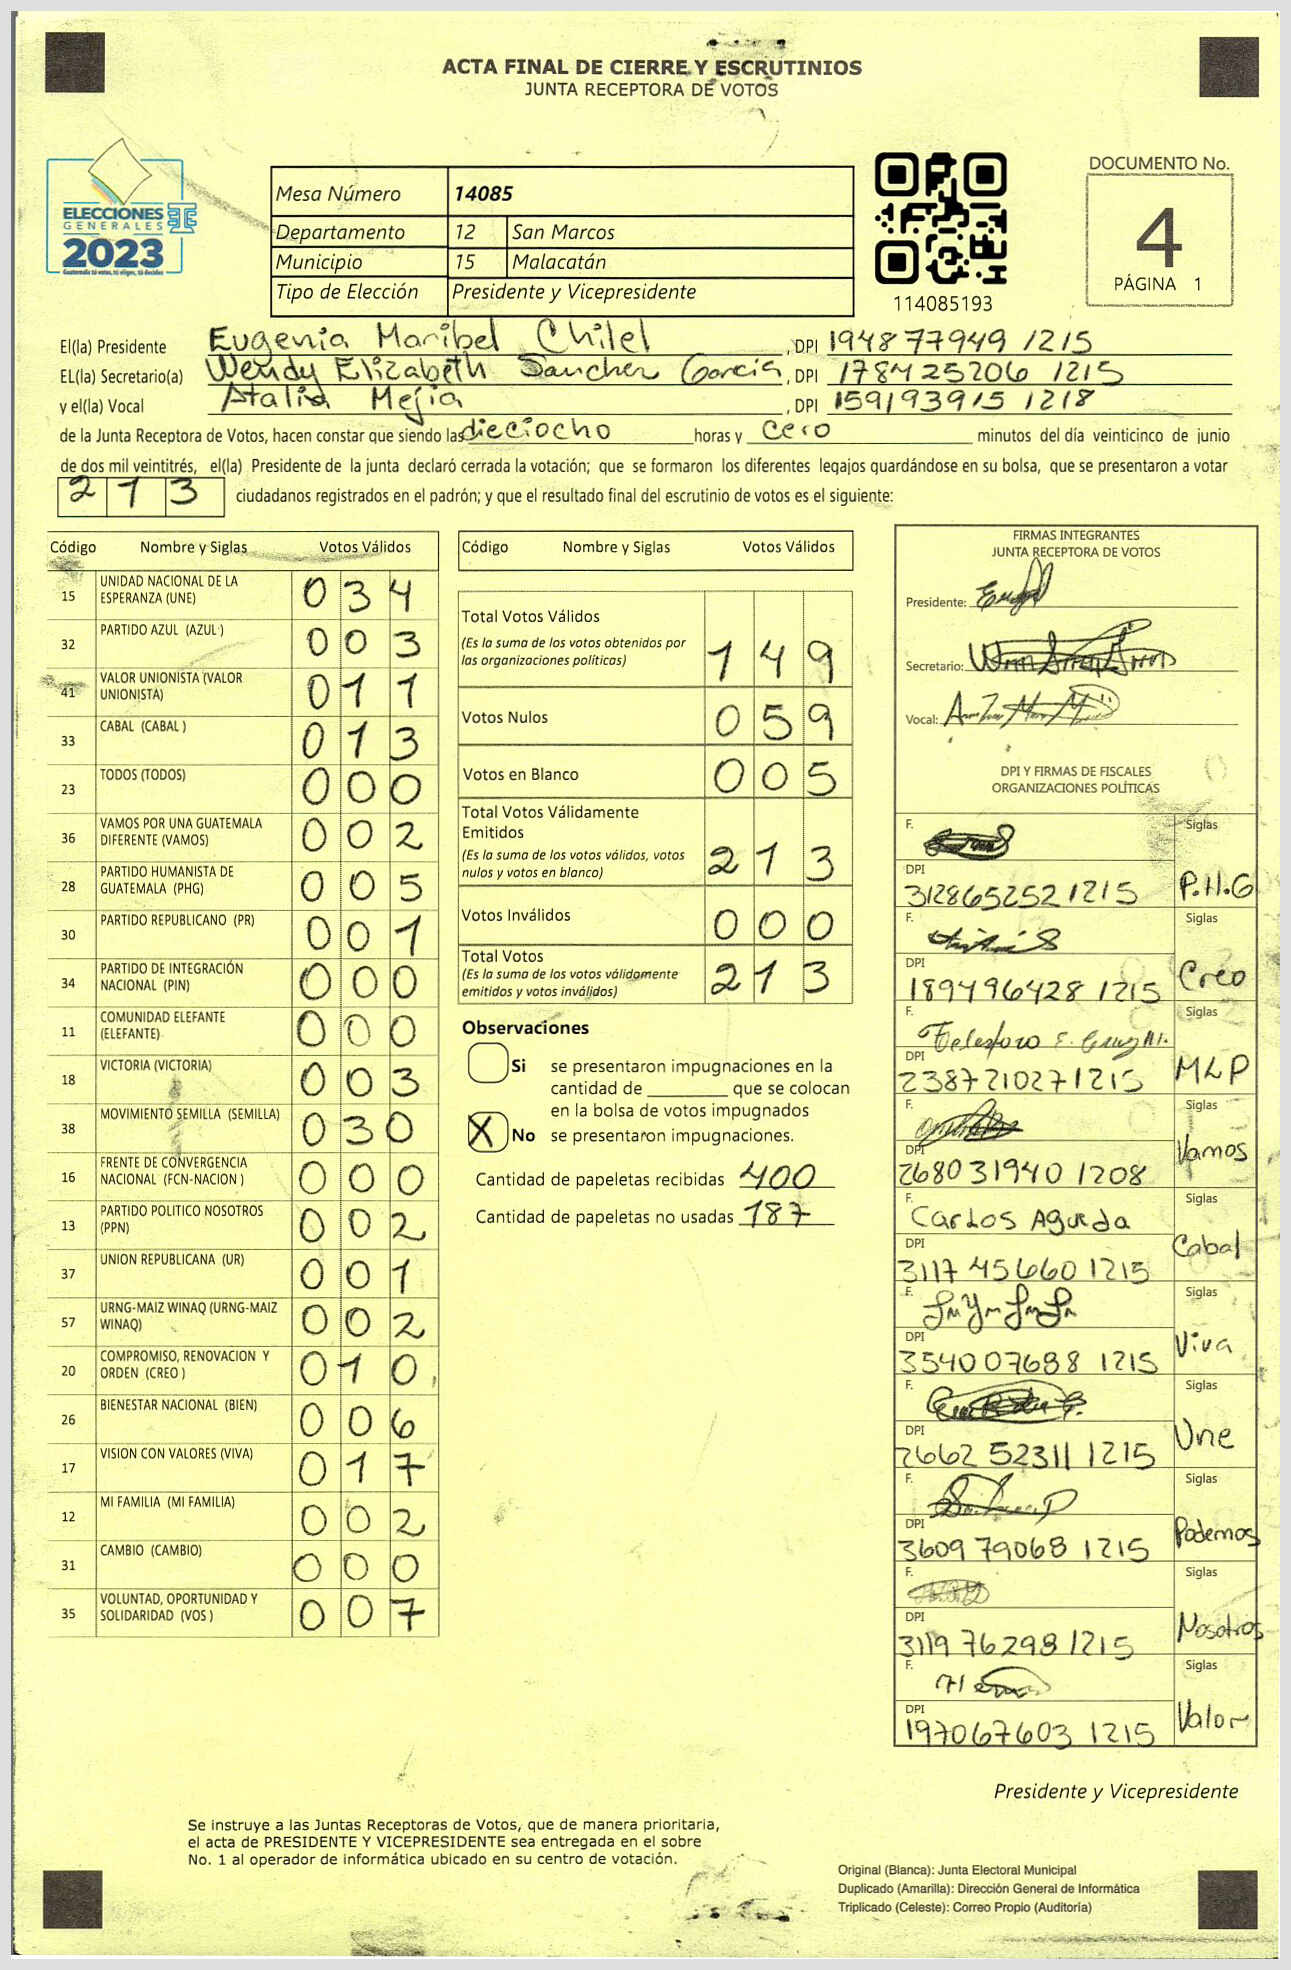 ACTA FINAL DE CIERRE Y ESCRUTINIOS
JUNTA RECEPTORA DE VOTOS
ELECCIONES
GENERALES
2023
Guatemala tú votas, tú eliges, tú decides
Mesa Número 14085
Departamento 12 San Marcos
Municipio 15 Malacatán
Tipo de Elección Presidente y Vicepresidente
114085193
DOCUMENTO No.
4
PÁGINA 1
El(la) Presidente Eugenia Maribel Chilel, DPI 194877949 1215
EL(la) Secretario(a) Wendy Elizabeth Sanchez Garcia, DPI 178425206 1215
y el(la) Vocal Atalia Mejia, DPI 159193915 1218
de la Junta Receptora de Votos, hacen constar que siendo las dieciocho horas y cero minutos del día veinticinco de junio
de dos mil veintitrés, el(la) Presidente de la junta declaró cerrada la votación; que se formaron los diferentes legajos guardándose en su bolsa, que se presentaron a votar
213 ciudadanos registrados en el padrón; y que el resultado final del escrutinio de votos es el siguiente:
Código Nombre y Siglas Votos Válidos
15 UNIDAD NACIONAL DE LA ESPERANZA (UNE) 034
32 PARTIDO AZUL (AZUL) 003
41 VALOR UNIONISTA (VALOR UNIONISTA) 011
33 CABAL (CABAL ) 013
23 TODOS (TODOS) 000
36 VAMOS POR UNA GUATEMALA DIFERENTE (VAMOS) 002
28 PARTIDO HUMANISTA DE GUATEMALA (PHG) 005
30 PARTIDO REPUBLICANO (PR) 001
34 PARTIDO DE INTEGRACIÓN NACIONAL (PIN) 000
11 COMUNIDAD ELEFANTE (ELEFANTE) 000
18 VICTORIA (VICTORIA) 003
38 MOVIMIENTO SEMILLA (SEMILLA) 030
16 FRENTE DE CONVERGENCIA NACIONAL (FCN-NACION ) 000
13 PARTIDO POLITICO NOSOTROS (PPN) 002
37 UNION REPUBLICANA (UR) 001
57 URNG-MAIZ WINAQ (URNG-MAIZ WINAQ) 002
20 COMPROMISO, RENOVACION Y ORDEN (CREO ) 010
26 BIENESTAR NACIONAL (BIEN) 006
17 VISION CON VALORES (VIVA) 017
12 MI FAMILIA (MI FAMILIA) 002
31 CAMBIO (CAMBIO) 000
35 VOLUNTAD, OPORTUNIDAD Y SOLIDARIDAD (VOS ) 007
Código Nombre y Siglas Votos Válidos
Total Votos Válidos 149
(Es la suma de los votos obtenidos por
las organizaciones políticas)
Votos Nulos 059
Votos en Blanco 005
Total Votos Válidamente
Emitidos 213
(Es la suma de los votos válidos, votos
nulos y votos en blanco)
Votos Inválidos 000
Total Votos 213
(Es la suma de los votos válidamente
emitidos y votos inválidos)
Observaciones
Si se presentaron impugnaciones en la
cantidad de ________ que se colocan
en la bolsa de votos impugnados
X No se presentaron impugnaciones.
Cantidad de papeletas recibidas 400
Cantidad de papeletas no usadas 187
FIRMAS INTEGRANTES
JUNTA RECEPTORA DE VOTOS
Presidente:
Secretario:
Vocal:
DPI Y FIRMAS DE FISCALES
ORGANIZACIONES POLÍTICAS
F. Siglas
DPI 312865252 1215 P.H.G
F. Siglas
DPI 189496428 1215 Creo
F. Telesforo E. Siglas
DPI 238721027 1215 MLP
F. Siglas
DPI 268031940 1208 Vamos
F. Carlos Agueda Siglas
DPI 3117 45660 1215 Cabal
F. Siglas
DPI 354007688 1215 Viva
F. Siglas
DPI 2662 52311 1215 Une
F. Siglas
DPI 3609 79068 1215 Podemos
F. Siglas
DPI 3119 76298 1215 Nosotros
F. Siglas
DPI 197067603 1215 Valor
Presidente y Vicepresidente
Se instruye a las Juntas Receptoras de Votos, que de manera prioritaria,
el acta de PRESIDENTE Y VICEPRESIDENTE sea entregada en el sobre
No. 1 al operador de informática ubicado en su centro de votación.
Original (Blanca): Junta Electoral Municipal
Duplicado (Amarilla): Dirección General de Informática
Triplicado (Celeste): Correo Propio (Auditoría)